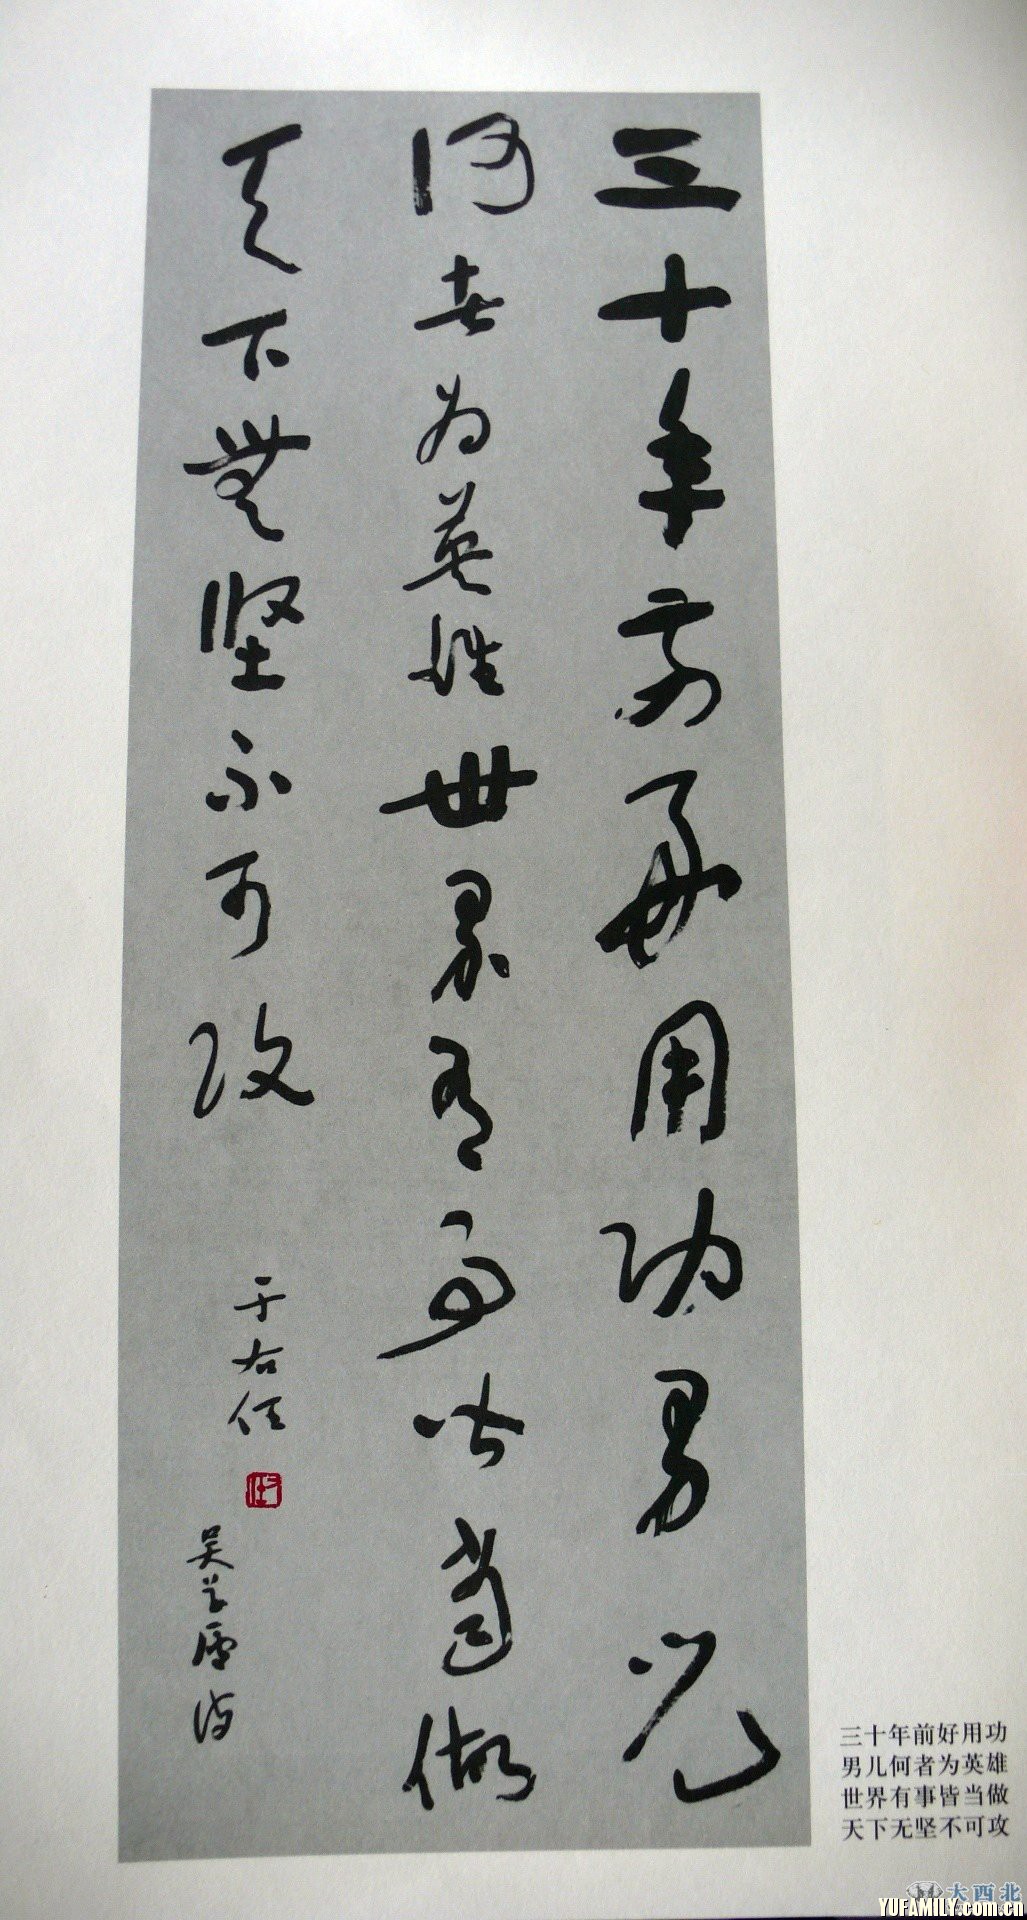 三十年前好用功男兒
何者为英雄世界有事皆當做
天下無坚不可攻
于右任
三十年前好用功
男儿何者为英雄
世界有事皆当做
天下无坚不可攻
大西北
YUFAMILY.com.cn